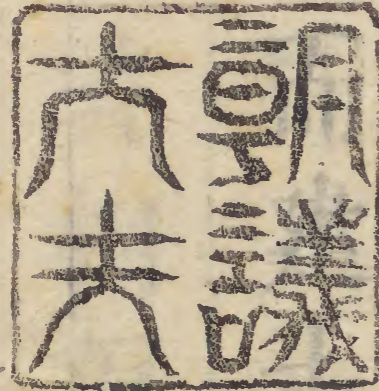 朝議
大夫